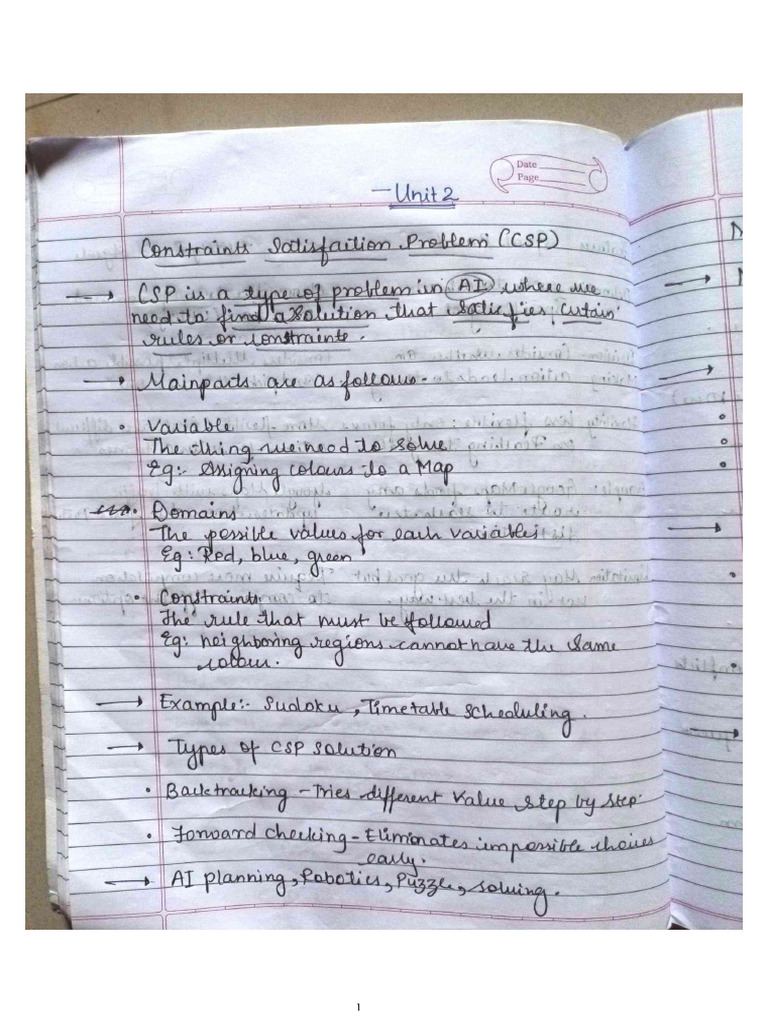 Date
Page
- Unit 2
Constraints Satisfaction Problem (CSP)
→ CSP is a type of problem in AI where we
need to find a solution that satisfies certain
rules or constraints.
→ Main parts are as follows -
• Variable
The thing we need to solve
Eg:- Assigning colours to a Map
• Domains
The possible values for each variables
Eg: Red, blue, green
• Constraints
The rule that must be followed
Eg: neighboring regions cannot have the same
colour.
→ Example:- Sudoku, Timetable scheduling.
→ Types of CSP solution
• Backtracking - Tries different value step by step.
• Forward checking - Eliminates impossible choices
early.
→ AI planning, Robotics, Puzzle, solving.
1